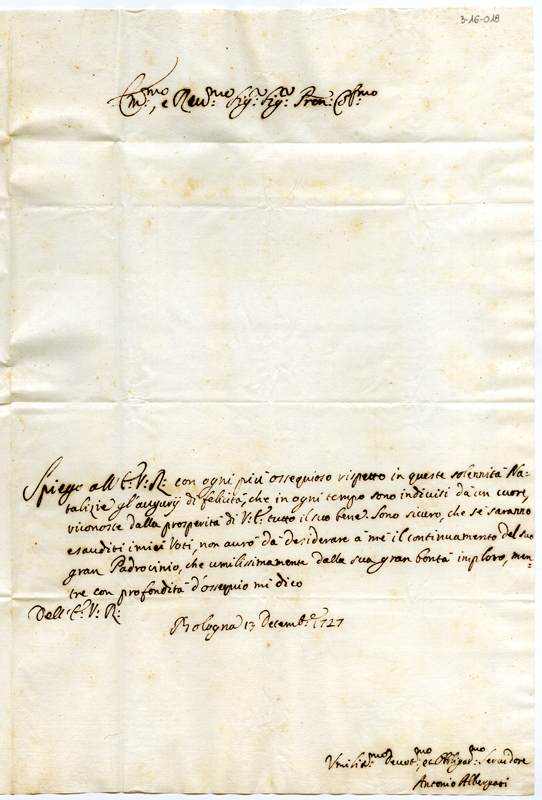 3-16-018
Em:mo, e Reu:mo Sig:r Sig:r Pren: Col:mo
Spiego all'E: V: R: con ogni più ossequioso rispetto in queste solennità Na=
talizie gl'augurij di felicità, che in ogni tempo sono indivisi da un cuore,
riconosce dalla prosperità di V: E: tutto il suo bene. Sono sicuro, che se saranno
esauditi i miei Voti, non aurò da desiderare à me il continuamento del suo
gran Padrocinio, che umilissimamente dalla sua gran bontà imploro, men=
tre con profondità d'ossequio mi dico
Dell'E: V: R:
Bologna 13 Decemb:e 1727
Vmiliss:mo Deuot:mo et Obligat:mo Seruidore
Antonio Albergati